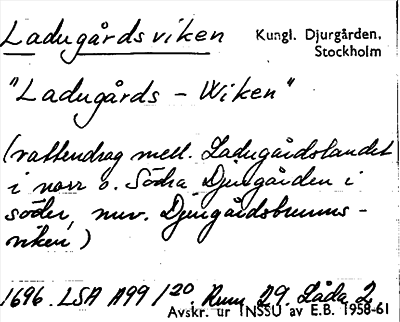 Ladugårdsviken
Kungl. Djurgården,
Stockholm
"Ladugårds - Wiken"
(vattendrag mell. Ladugårdslandet
i norr o. Södra Djurgården i
söder, nuv. Djurgårdsbrunns-
viken)
1696. LSA A99 1/20. Rum 29. Låda 2
Avskr. ur INSSU av E.B. 1958-61